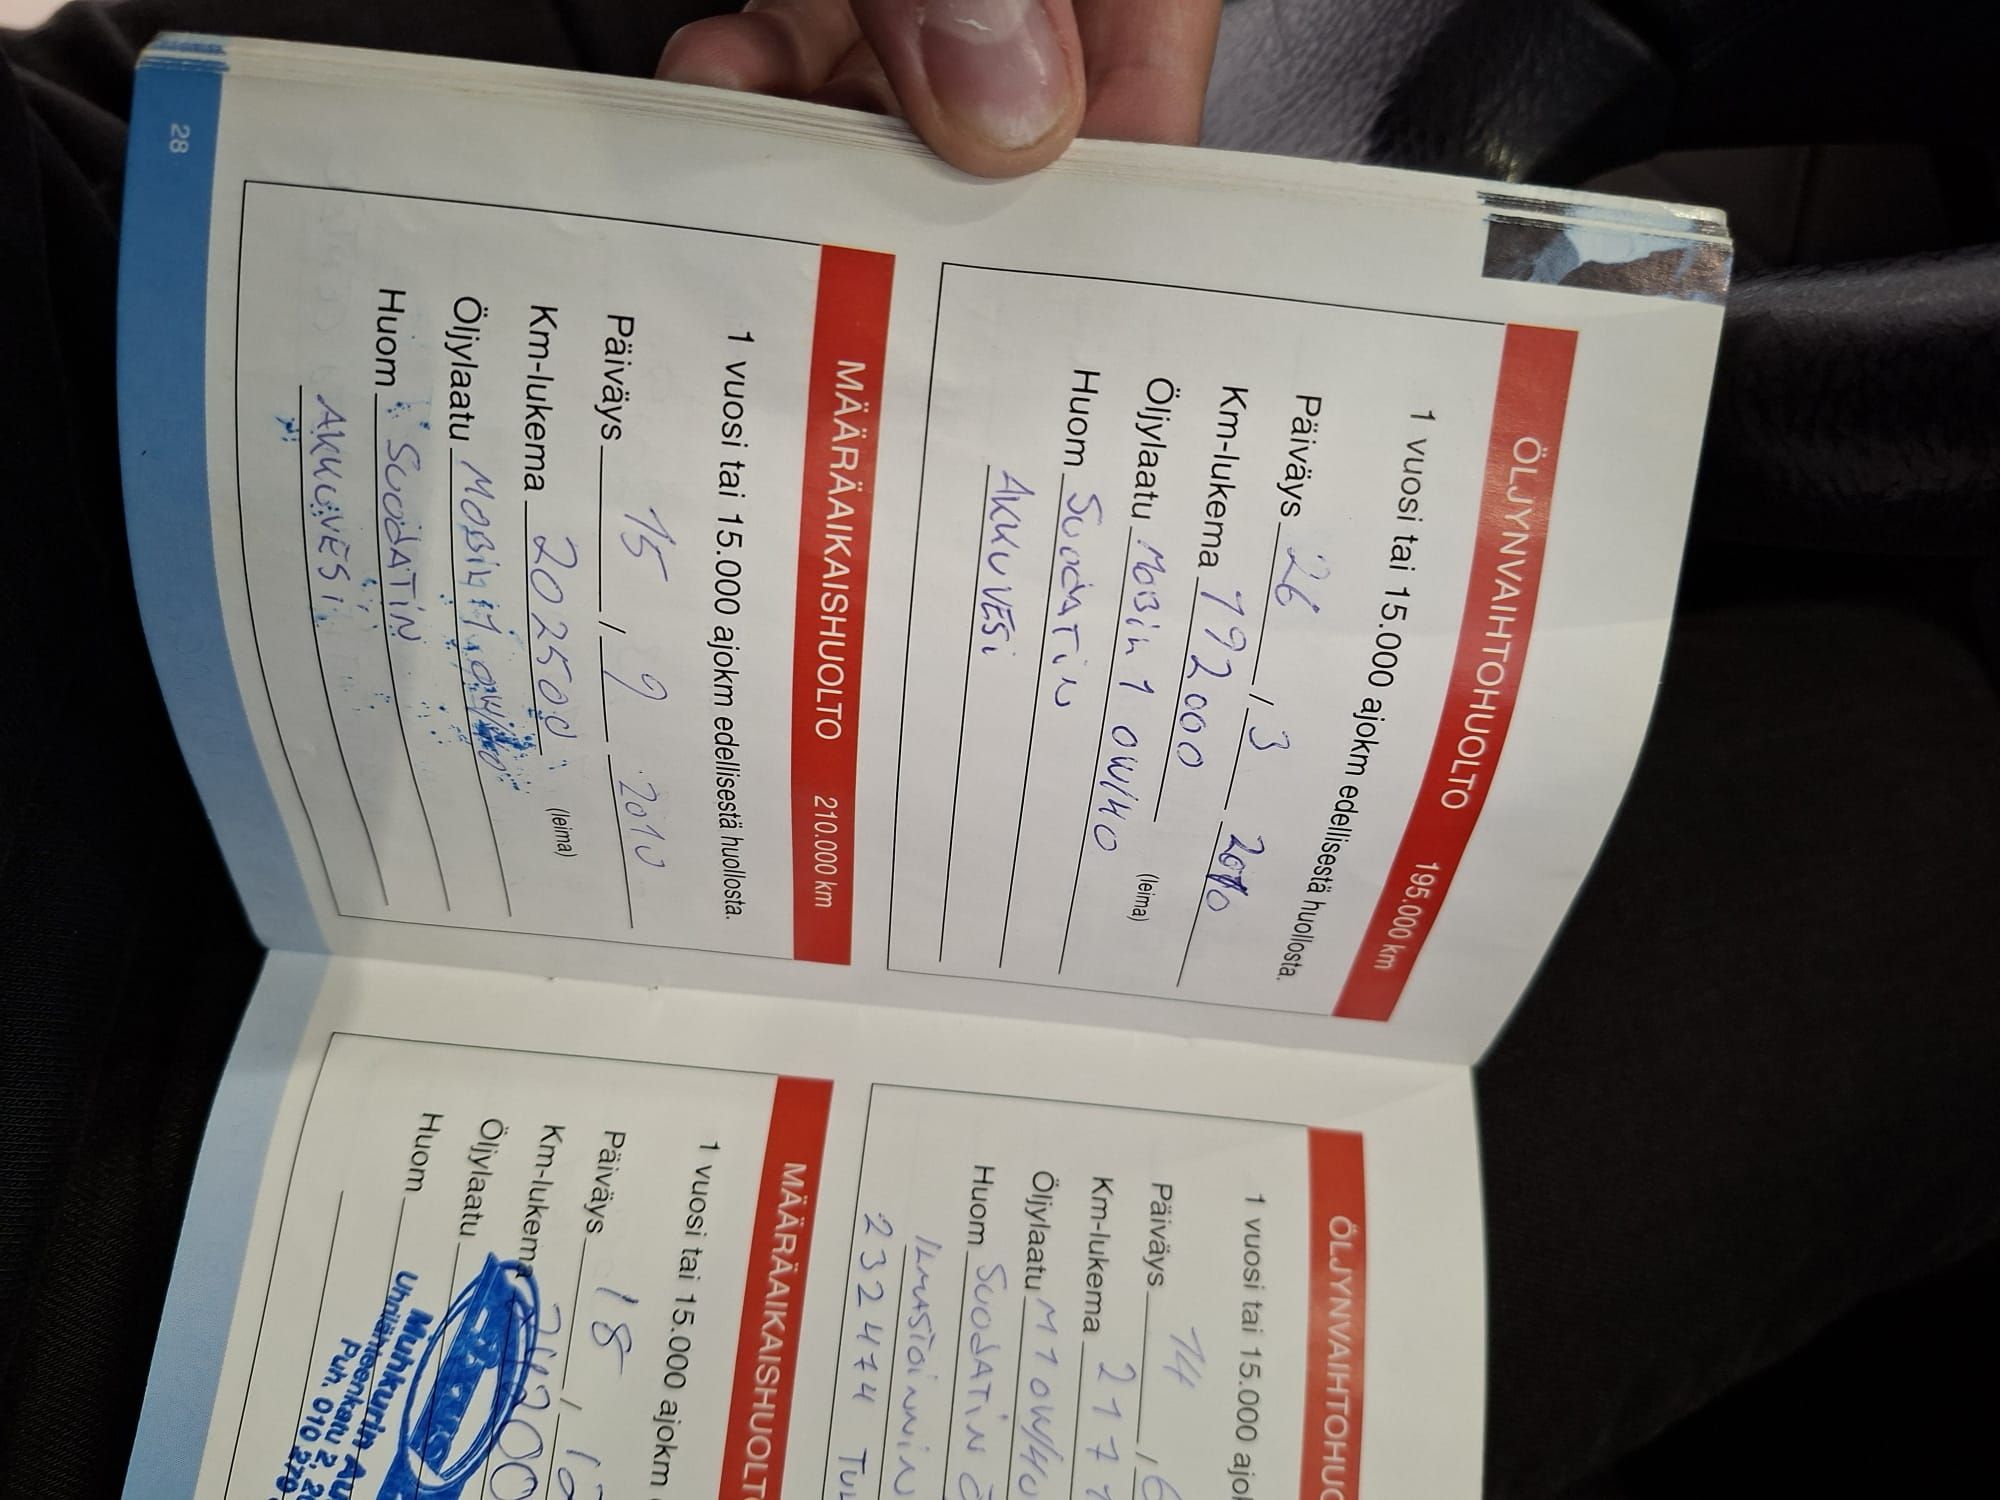 ÖLJYNVAIHTOHUOLTO 195.000 km
1 vuosi tai 15.000 ajokm edellisestä huollosta.
Päiväys 26 / 3 2010
Km-lukema 192000
Öljylaatu MOBIL 1 0W/40 (leima)
Huom SUODATIN
AKKUVESI
MÄÄRÄAIKAISHUOLTO 210.000 km
1 vuosi tai 15.000 ajokm edellisestä huollosta.
Päiväys 15 / 9 2010
Km-lukema 202500 (leima)
Öljylaatu MOBIL 1 0W/40
Huom SUODATIN
AKKUVESI
28
ÖLJYNVAIHTOHUO
1 vuosi tai 15.000 ajo
Päiväys 14 / 6
Km-lukema 2177
Öljylaatu M1 0W/40
Huom SUODATIN
232474
MÄÄRÄAIKAISHUOLT
1 vuosi tai 15.000 ajokm
Päiväys 18 / 12
Km-lukema
Öljylaatu
Huom
Muhkurin Au
Puh. 010 270